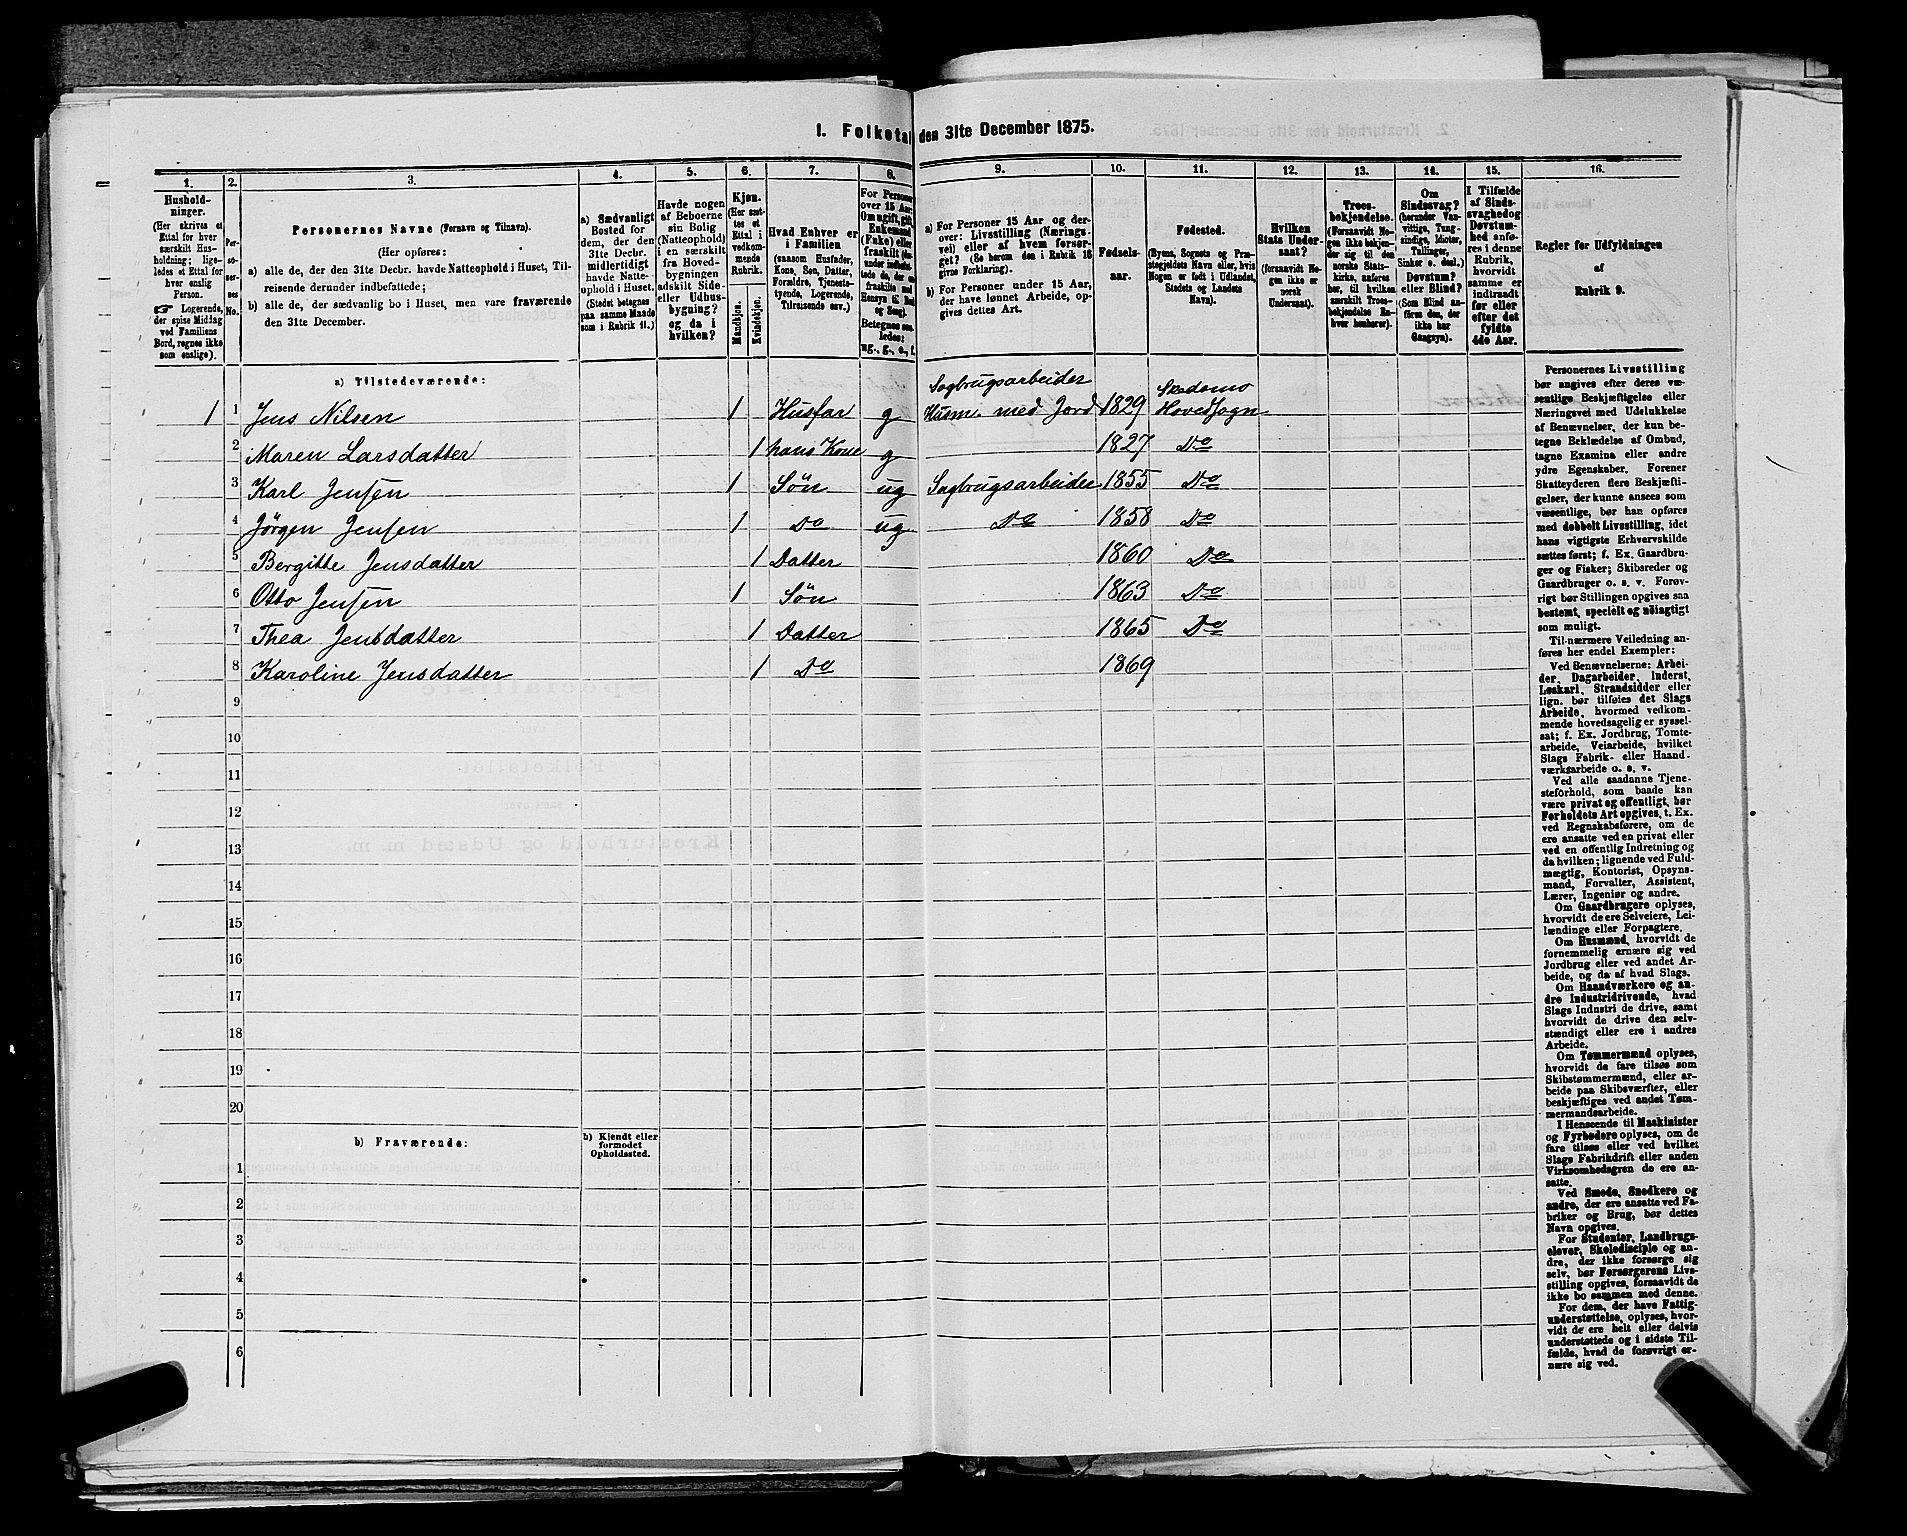 1. Folketal den 31te December 1875.
1.
2.
3.
4.
5.
6.
7.
8.
9.
10.
11.
12.
13.
14.
15.
16.
Hushold-
ninger.
(Her skrives et
Ettal for hver
særskilt Hus-
holdning; lige-
ledes et Ettal for
hver enslig
Person.
☞ Logerende,
der spise Middag
ved Familiens
Bord, regnes ikke
som enslige).
Per-
so-
ner-
nes
No.
Personernes Navne (Fornavn og Tilnavn).
(Her opføres:
a) alle de, der den 31te Decbr. havde Natteophold i Huset, Til-
reisende derunder indbefattede;
b) alle de, der sædvanlig bo i Huset, men vare fraværende
den 31te December.
a) Sædvanligt
Bosted for
dem, der den
31te Decbr.
midlertidigt
havde Natte-
ophold i Huset.
(Stedet betegnes
paa samme Maade
som i Rubrik 11.)
Havde nogen
af Beboerne
sin Bolig
(Natteophold)
i en særskilt
fra Hoved-
bygningen
adskilt Side-
eller Udhus-
bygning?
og da i
hvilken?
Kjøn.
(Her sæt-
tes et
Ettal i
vedkom-
mende
Rubrik.
Mandkjøn.
Kvindekjøn.
Hvad Enhver er
i Familien
(saasom Husfader,
Kone, Søn, Datter,
Forældre, Tjeneste-
tyende, Logerende,
Tilreisende osv.)
For Personer
over 15 Aar:
Om ugift, gift,
Enkemand
(Enke) eller
fraskilt
Betegnes saa-
ledes:
ug., g., e., f.
a) For Personer 15 Aar og der-
over: Livsstilling (Nærings-
vei) eller af hvem forsør-
get? (Se herom den i Rubrik 16
givne Forklaring).
b) For Personer under 15 Aar,
der have lønnet Arbeide, op-
gives dettes Art.
Fødsels-
aar.
Fødested.
(Byens, Sognets og Præ-
stegjeldets Navn eller, hvis
Nogen er født i Udlandet,
Stedets og Landets
Navn).
Hvilken
Stats Under-
saat?
(forsaavidt No-
gen ikke er
norsk
Undersaat).
Troes-
bekjendelse.
(Forsaavidt No-
gen ikke bekjen-
der sig til den
norske Stats-
kirke, anføres
her, til hvilken
særskilt Troes-
bekjendelse En-
hver henhører).
Om
Sindssvag?
(herunder Van-
vittige, Tung-
sindige, Idioter,
Tullinger,
Sinker o. desl.)
Døvstum?
eller Blind?
(Som Blind an-
føres den, der
ikke har
Gangsyn).
I Tilfælde
af Sinds-
svaghed og
Døvstum-
hed anfø-
res i denne
Rubrik,
hvorvidt
samme er
indtraadt
før eller
efter det
fyldte
4de Aar.
Regler for Udfyldningen
af
Rubrik 9.
a) Tilstedeværende:
1 1 Jens Nilsen 1 Husfar g Sagbrugsarbeider Husm. med Jord 1829 Skedsmo Hovedsogn
2 Maren Larsdatter 1 hans Kone g 1827 Do
3 Karl Jensen 1 Søn ug Sagbrugsarbeider 1855 Do
4 Jørgen Jensen 1 Do ug Do 1858 Do
5 Bergitte Jensdatter 1 Datter 1860 Do
6 Otto Jensen 1 Søn 1863 Do
7 Thea Jensdatter 1 Datter 1865 Do
8 Karoline Jensdatter 1 Do 1869
9
10
11
12
13
14
15
16
17
18
19
20
b) Fraværende:
b) Kjendt eller
formodet
Opholdssted.
1
2
3
4
5
6
Personernes Livsstilling
bør angives efter deres væ-
sentlige Beskjæftigelse eller
Næringsvei med Udelukkelse
af Benævnelser, der kun be-
tegne Beklædelse af Ombud,
tagne Examina eller andre
ydre Egenskaber. Forener
Skatteyderen flere Beskjæfti-
gelser, der kunne ansees som
væsentlige, bør han opføres
med dobbelt Livsstilling, idet
hans vigtigste Erhvervskilde
sættes først; f. Ex. Gaardbru-
ger og Fisker; Skibsreder og
Gaardbruger o. s. v. Forøv-
rigt bør Stillingen opgives saa
bestemt, specielt og nøiagtigt
som muligt.
Til nærmere Veiledning an-
føres her endel Exempler:
Ved Benævnelserne: Arbei-
der, Dagarbeider, Inderst,
Løskarl, Strandsidder eller
lign. bør tilføies det Slags
Arbeide, hvormed vedkom-
mende hovedsagelig er syssel-
sat; f. Ex. Jordbrug, Tomte-
arbeide, Veiarbeide, hvilket
Slags Fabrik- eller Haand-
værksarbeide o. s. v.
Ved alle saadanne Tjene-
steforhold, som baade kan
være privat og offentligt, bør
Forholdets Art opgives, t. Ex.
ved Regnskabsførere, om de
ere ansatte ved en privat eller
ved en offentlig Indretning og
da hvilken; lignende ved Fuld-
mægtig, Kontorist, Opsyns-
mand, Forvalter, Assistent,
Lærer, Ingeniør og andre.
Om Gaardbrugere oplyses,
hvorvidt de ere Selveiere, Lei-
lændinge eller Forpagtere.
Om Husmænd, hvorvidt de
fornemmelig ernære sig ved
Jordbrug eller ved andet Ar-
beide, og da af hvad Slags.
Om Haandværkere og an-
dre Industridrivende, hvad
Slags Industri de drive, samt
hvorvidt de drive den selv-
stændigt eller ere i andres
Arbeide.
Om Tømmermænd oplyses,
hvorvidt de fare tilsøs som
Skibstømmermænd, eller ar-
beide paa Skibsværfter, eller
beskjæftiges ved andet Tøm-
mermandsarbeide.
I Henseende til Maskinister
og Fyrbødere oplyses, om de
fare tilsøs eller ved hvilket
Slags Fabrikdrift eller anden
Virksomhedsgren de ere an-
satte.
Ved Smede, Snedkere og
andre, der ere ansatte ved Fa-
briker og Brug, bør dettes
Navn opgives.
For Studenter, Landbrugs-
elever, Skoledisciple og an-
dre, der ikke forsørge sig
selv, bør Forsørgerens Livs-
stilling opgives, forsaavidt de
ikke bo sammen med denne.
For dem, der have Fattig-
understøttelse, oplyses, hvor-
vidt de ere helt eller delvis
understøttede og i sidste Til-
fælde, hvad de forøvrigt er-
nære sig ved.